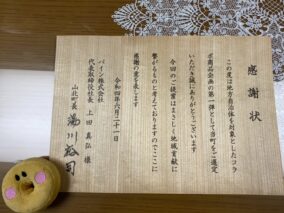 感謝状
この度は地方自治体を対象としたコラ
ボ商品企画の第一弾として当町をご選定
いただき誠にありがとうございます
今回のご提案はまさしく地域貢献に
繋がるものと考えておりますのでここに
感謝の意を表します
令和四年六月二十一日
パイン株式会社
代表取締役社長 上田 真弘 様
山北町長 湯川裕司